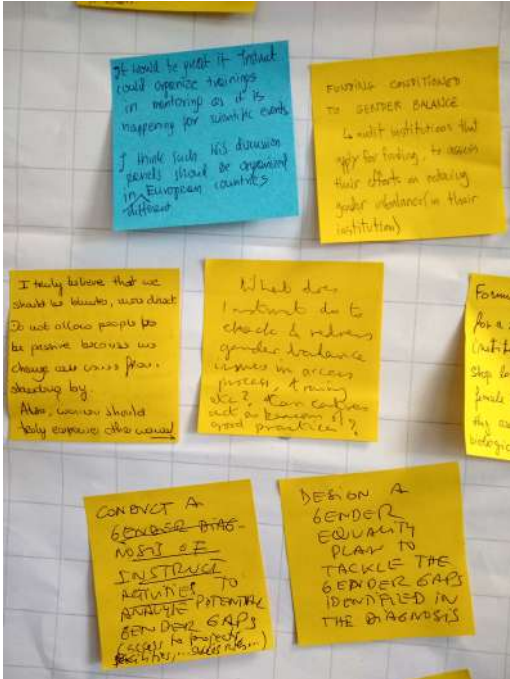 It would be great if Instruct
could organize trainings
in mentoring as it is
happening for scientific events
I think such discussion
panels should be organized
in European countries
different
FUNDING CONDITIONED
TO GENDER BALANCE
↳ audit institutions that
apply for funding, to assess
their efforts on reducing
gender imbalance (in their
institution)
I truly believe that we
should be blunter, more direct
Do not allow people to
be passive because no
change ever comes from
standing by.
Also, women should
truly empower other women!
What does
Instruct do to
check & redress
gender balance
issues in access
process, training
etc?
act as beacons of
good practice?
CONDUCT A
GENDER DIAG-
NOSIS OF
INSTRUCT
ACTIVITIES TO
ANALYSE POTENTIAL
GENDER GAPS
(access to projects,
facilities, ... success rates...)
DESIGN A
GENDER
EQUALITY
PLAN TO
TACKLE THE
GENDER GAPS
IDENTIFIED IN
THE DIAGNOSIS
for a
stop
female
they